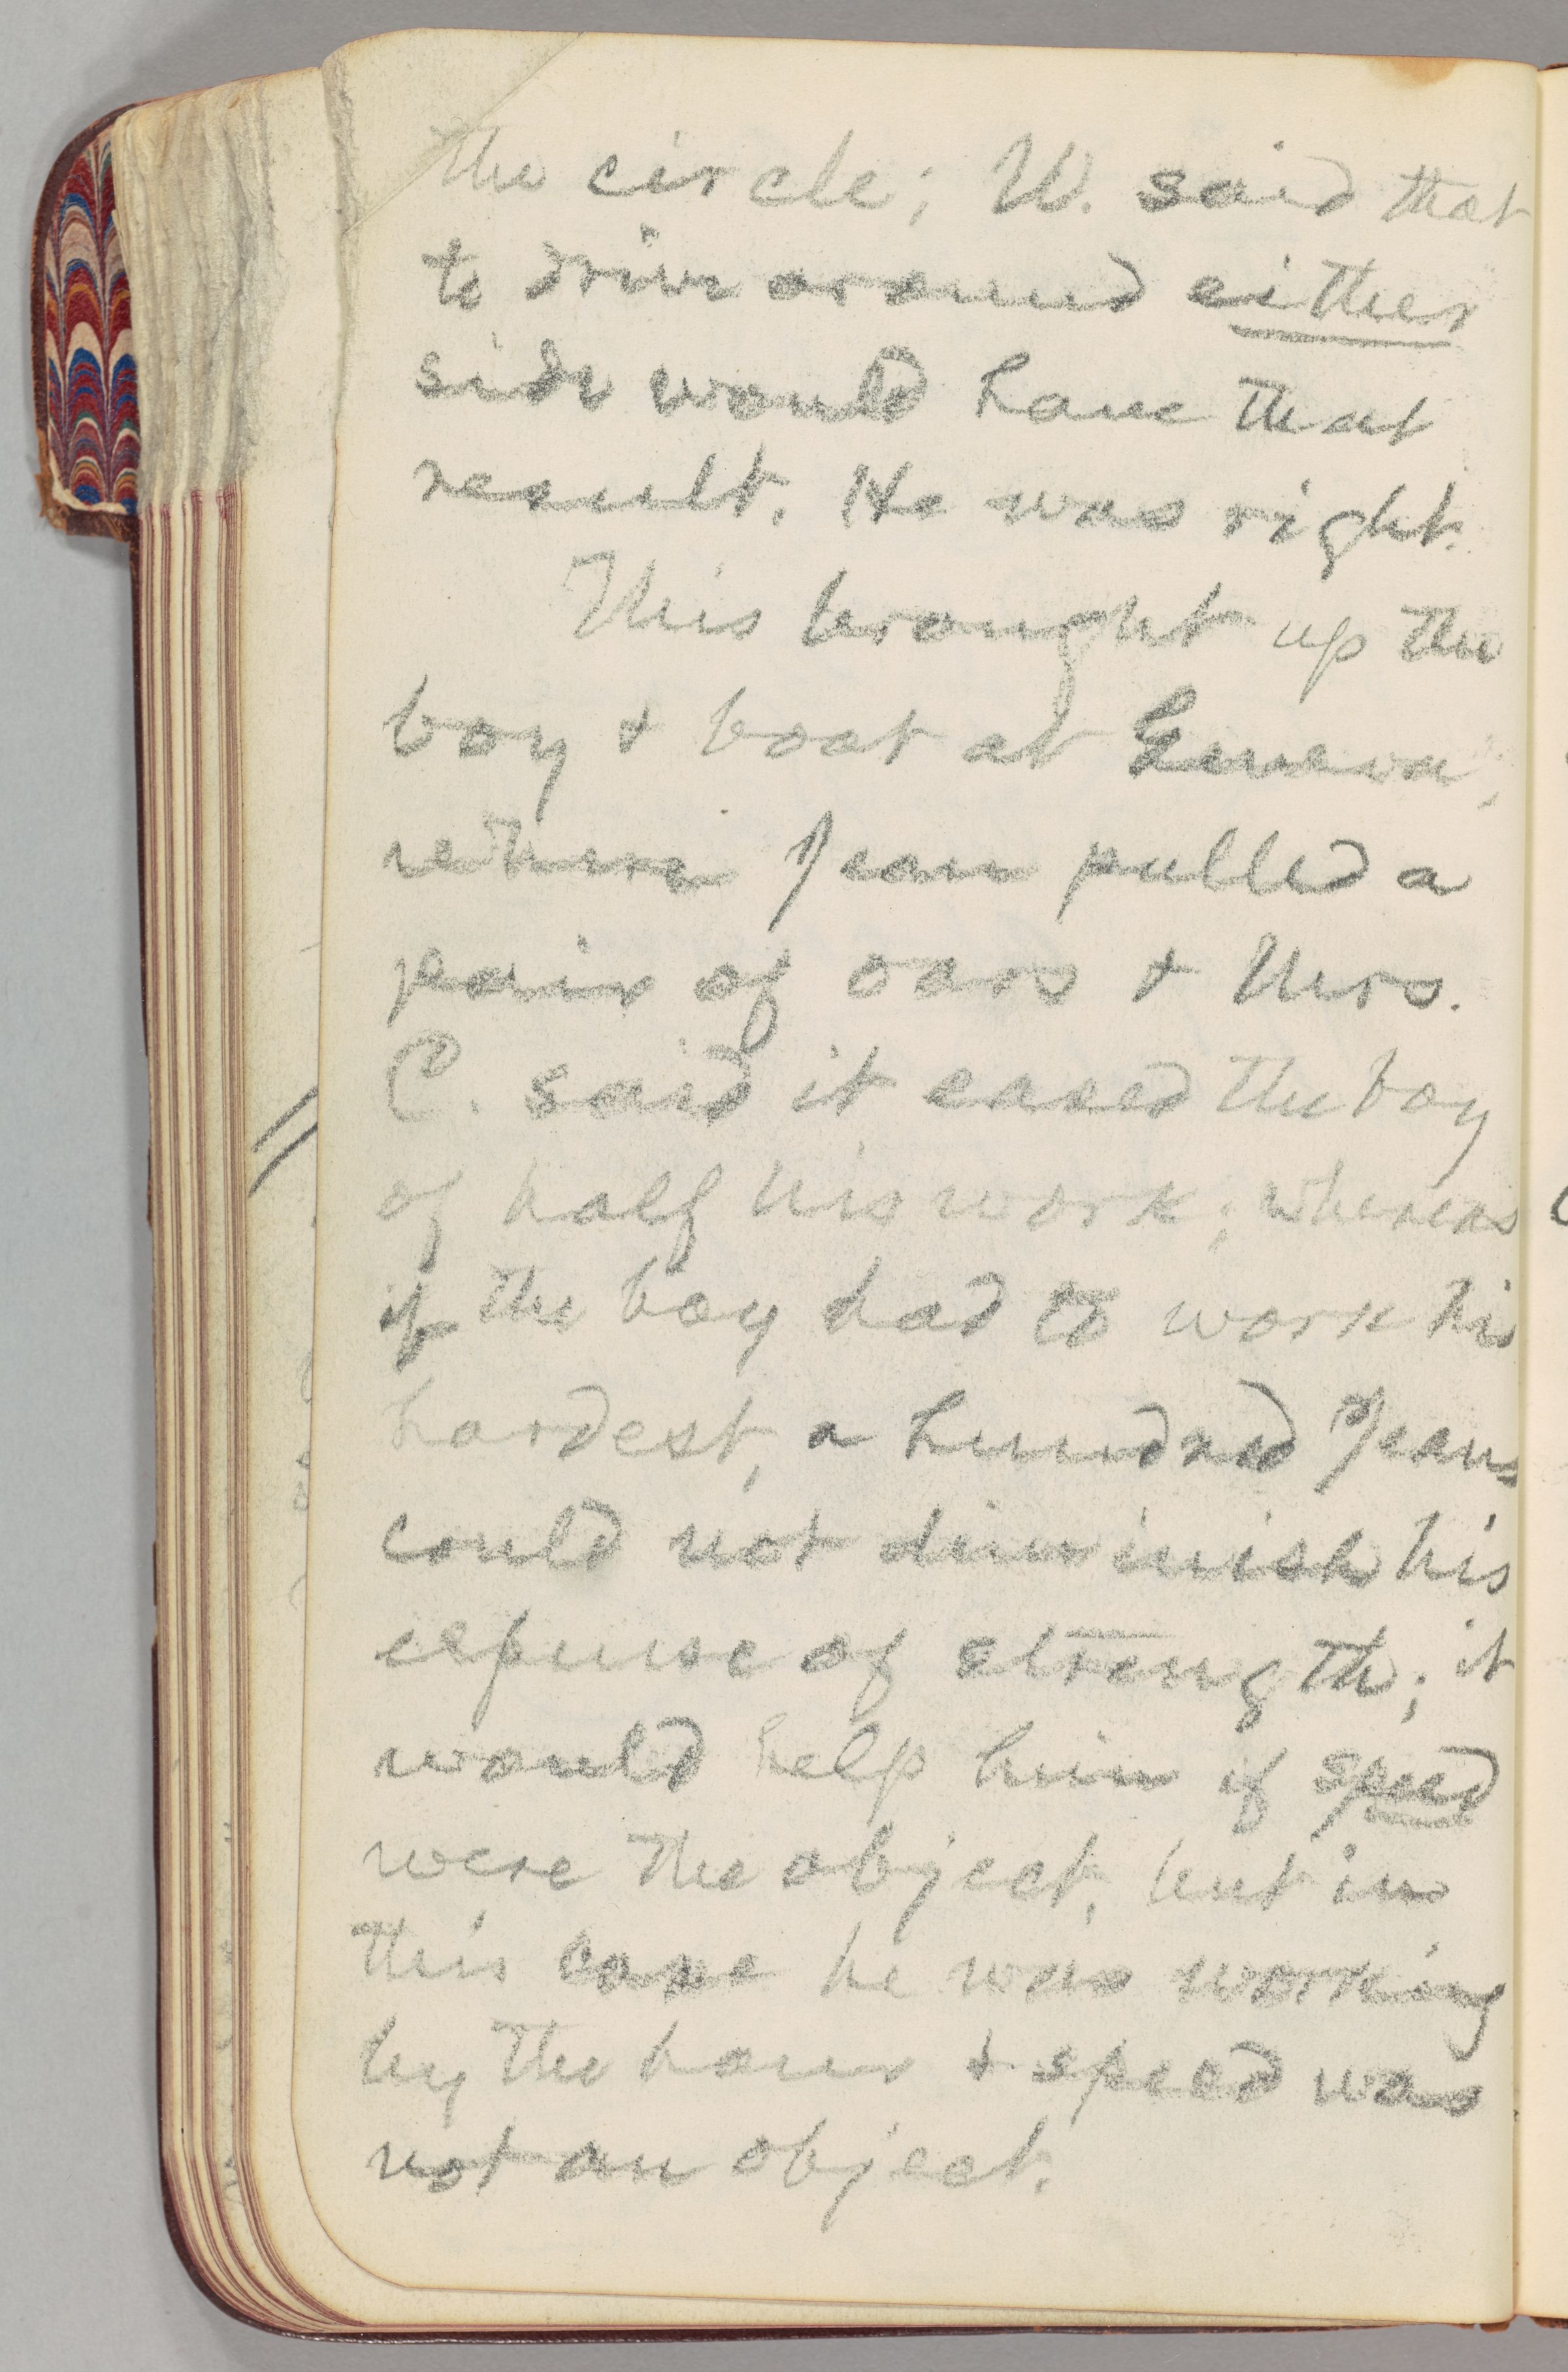 the circle; W. said that
to drive around either
side would have that
result. He was right.
This brought up the
boy & boat at Geneva,
where Jean pulled a
pair of oars & Mrs.
C. said it eased the boy
of half his work; whereas
if the boy had to work his
hardest, a hundred Jeans
could not diminish his
expense of strength; it
would help him if speed
were the object, but in
this case he was working
by the hour & speed was
not an object.